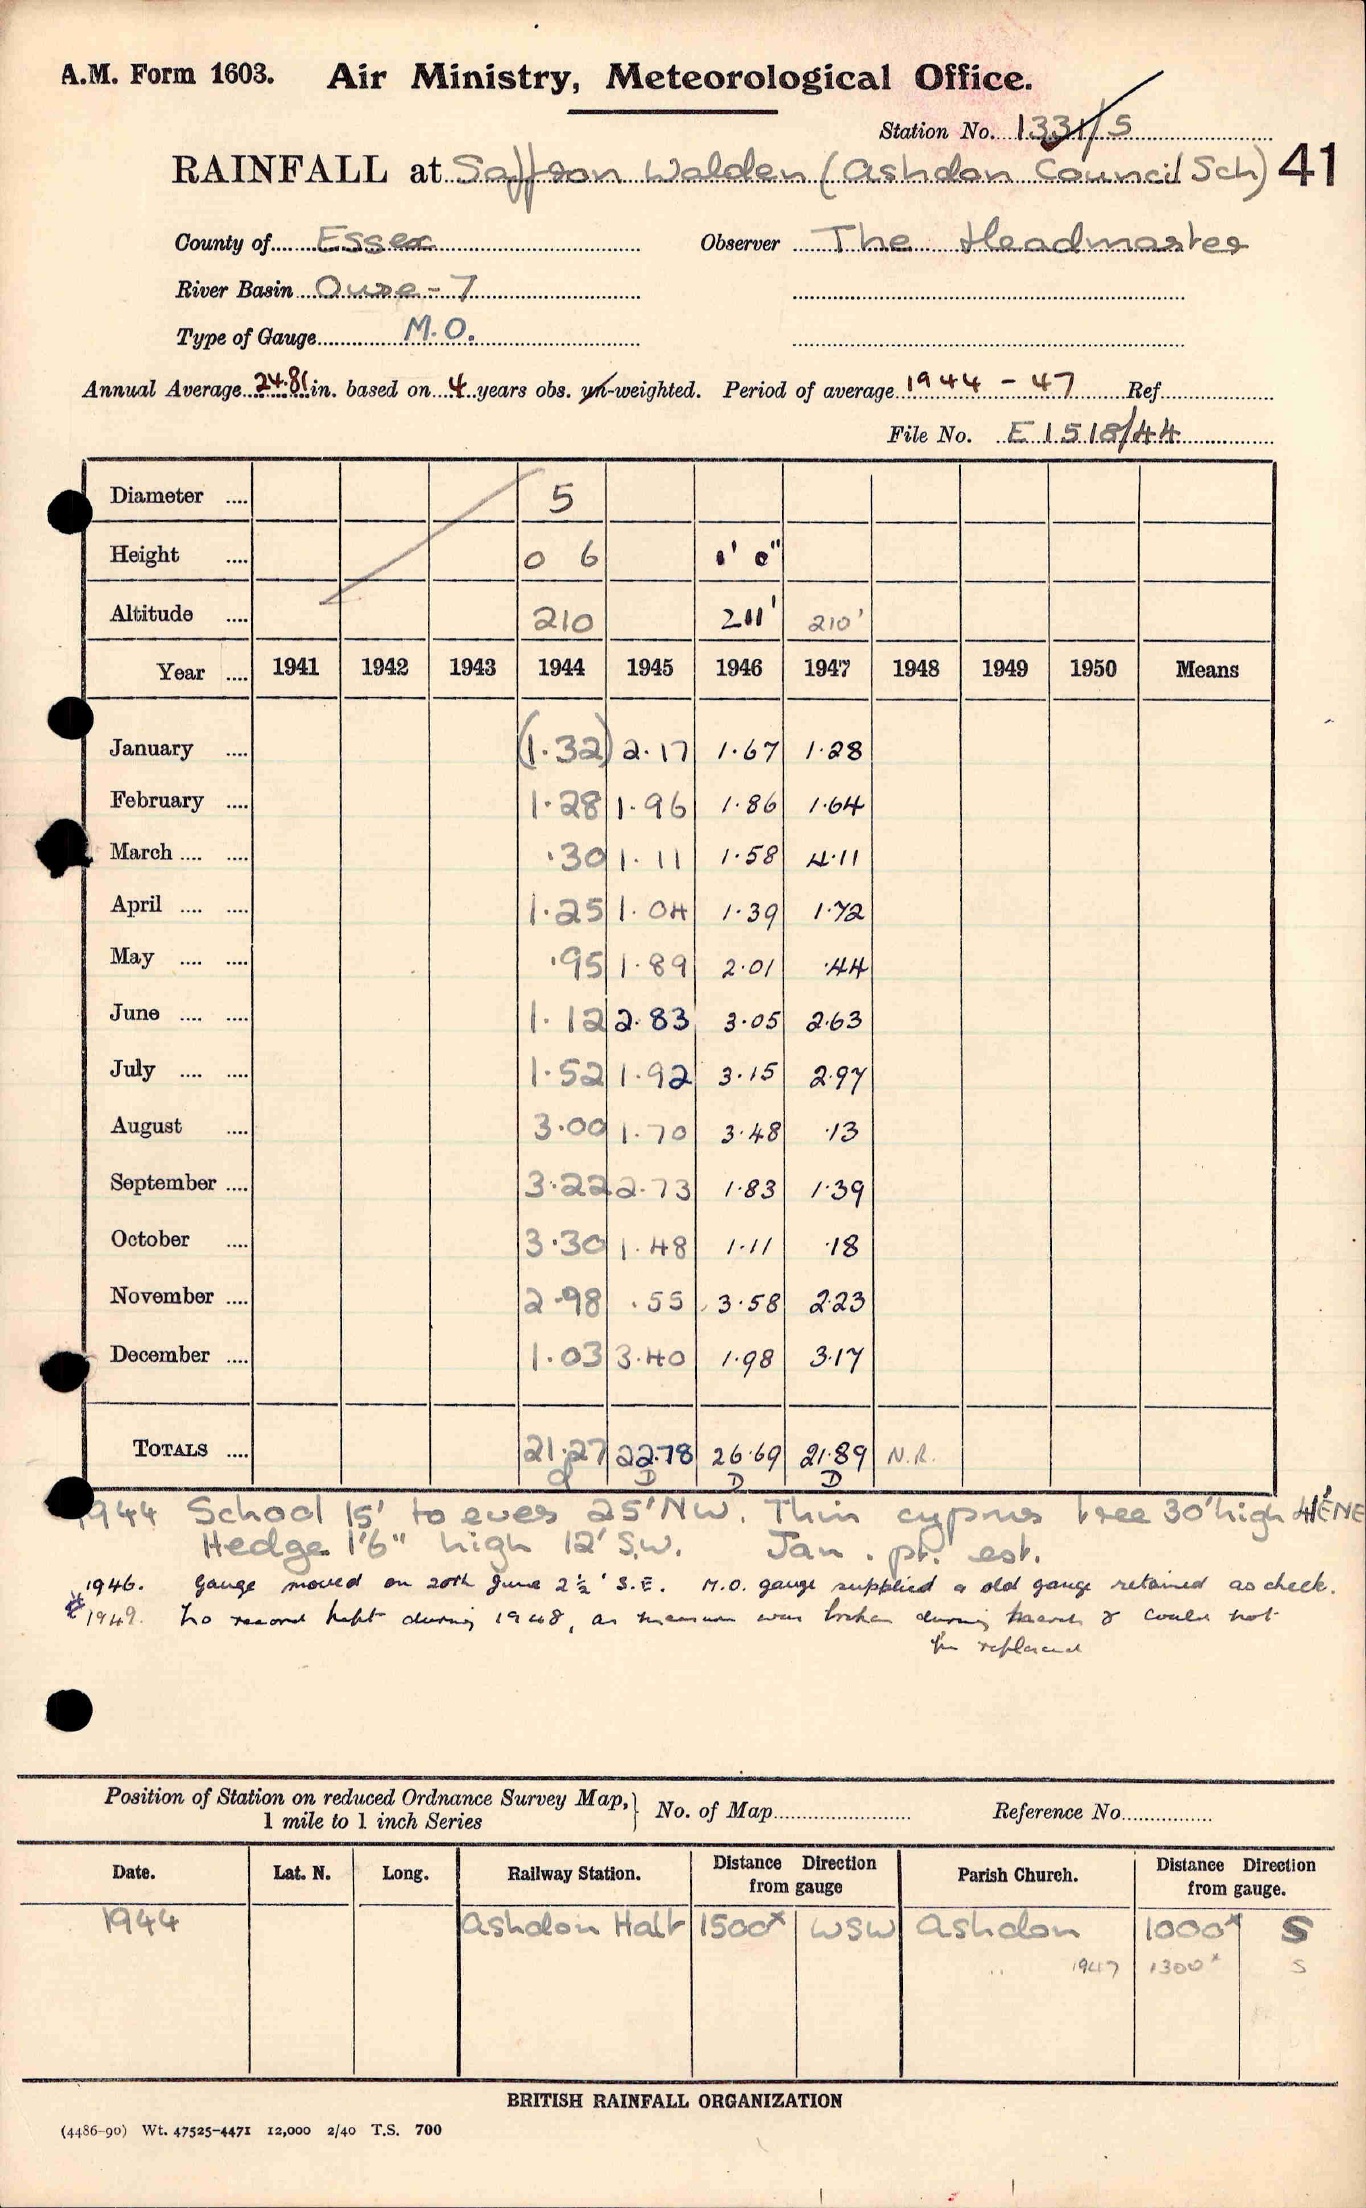 A.M. Form 1603. Air Ministry, Meteorological Office.
Station No. 1331/5
RAINFALL at Saffron Walden (Ashdon Council Sch) 41
County of Essex Observer The Headmaster
River Basin Ouse - 7
Type of Gauge M.O.
Annual Average 24.81 in. based on 4 years obs. un-weighted. Period of average 1944 - 47 Ref
File No. E1518/44
Diameter .... 5
Height .... 0 6 1' 0"
Altitude .... 210 211' 210'
Year .... 1941 1942 1943 1944 1945 1946 1947 1948 1949 1950 Means
January .... (1.32) 2.17 1.67 1.28
February .... 1.28 1.96 1.86 1.64
March .... .... .30 1.11 1.58 4.11
April .... .... 1.25 1.04 1.39 1.72
May .... .... .95 1.89 2.01 .44
June .... .... 1.12 2.83 3.05 2.63
July .... .... 1.52 1.92 3.15 2.97
August .... 3.00 1.70 3.48 .13
September .... 3.22 2.73 1.83 1.39
October .... 3.30 1.48 1.11 .18
November .... 2.98 .55 3.58 2.23
December .... 1.03 3.40 1.98 3.17
TOTALS .... 21.27 22.78 26.69 21.89 N.R.
D D D
1944 School 15' to eves 25' NW. Thin cyprus tree 30' high 41' ENE
Hedge 1'6" high 12' S.W. Jan. pt. est.
1946. Gauge moved on 20th June 2½' S.E. M.O. gauge supplied & old gauge retained as check.
1949. No record kept during 1948, as measure was broken during March & could not
be replaced
Position of Station on reduced Ordnance Survey Map, 1 mile to 1 inch Series } No. of Map Reference No.
Date. Lat. N. Long. Railway Station. Distance Direction from gauge Parish Church. Distance Direction from gauge.
1944 Ashdon Halt 1500x WSW Ashdon 1000x S
.. 1947 1300x S
BRITISH RAINFALL ORGANIZATION
(4486-90) Wt. 47525-4471 12,000 2/40 T.S. 700